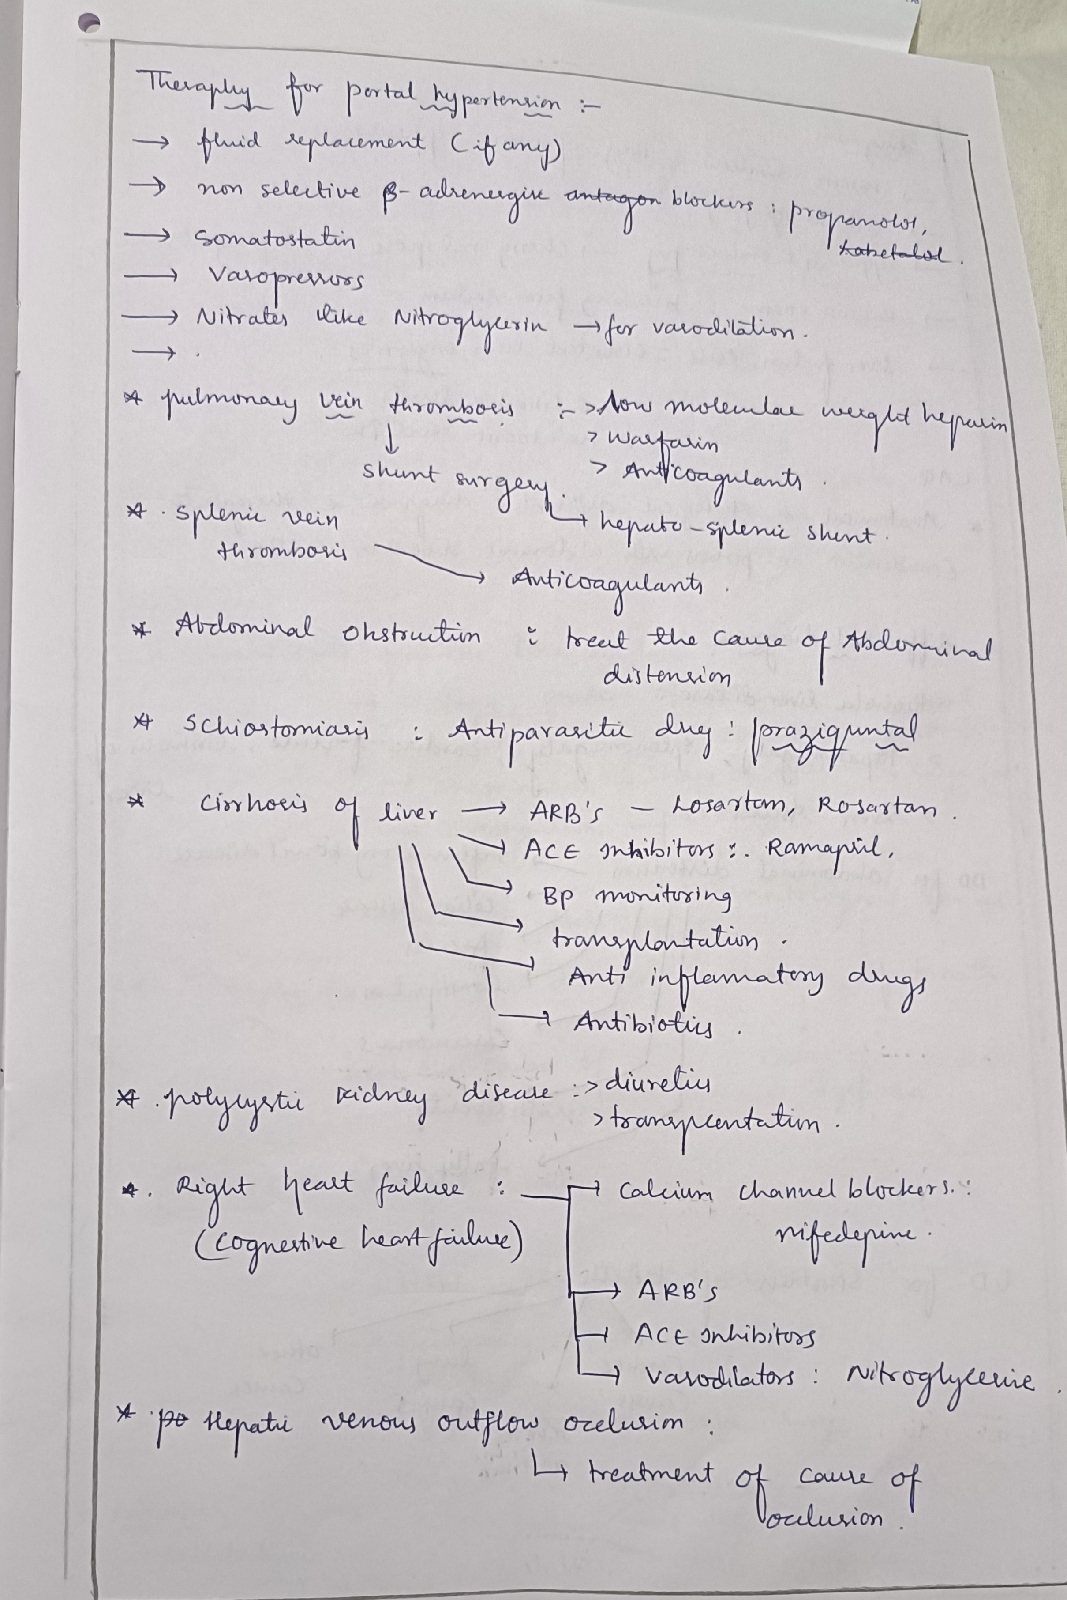 Theraphy for portal hypertension :-
→ fluid replacement (if any)
→ non selective β-adrenergic antagon blockers : propanolol,
labetalol.
→ Somatostatin
→ Vasopressors
→ Nitrates like Nitroglycerin → for vasodilation.
→ .
* pulmonary vein thrombosis :- > low molecular weight heparin
> Warfarin
↓ shunt surgery. > Anticoagulants .
↳ hepato-splenic shunt.
* . Splenic vein
thrombosis
→ Anticoagulants .
* Abdominal Obstruction : treat the cause of Abdominal
distension
* Schiostomiasis : Antiparasitic drug : praziquntal
* Cirrhosis of liver → ARB's - Losartan, Rosartan .
→ ACE Inhibitors :. Ramapril,
→ BP monitoring
→ transplantation .
→ Anti inflamatory drugs
→ Antibiotics .
* . polycystic kidney disease :> diuretics
> transplantation .
* . Right heart failure : → Calcium channel blockers. :
(Cognestive heart failure) nifedepine .
→ ARB's
→ ACE Inhibitors
→ Vasodilators : Nitroglycerine .
* . po Hepatic venous outflow occlusion :
↳ treatment of cause of
occlusion .